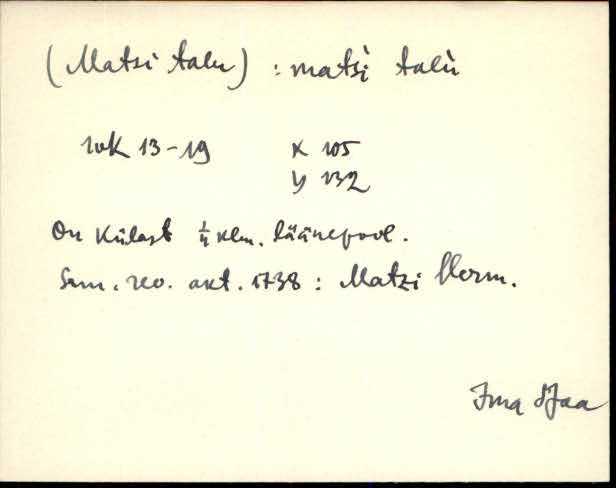 (Matsi talu) : matsi talù
rvk 13-19 x 105
y 132
On külast ¼ klm. läänepool.
Sm. rev. akt. 1738 : Matzi Herm.
Ima